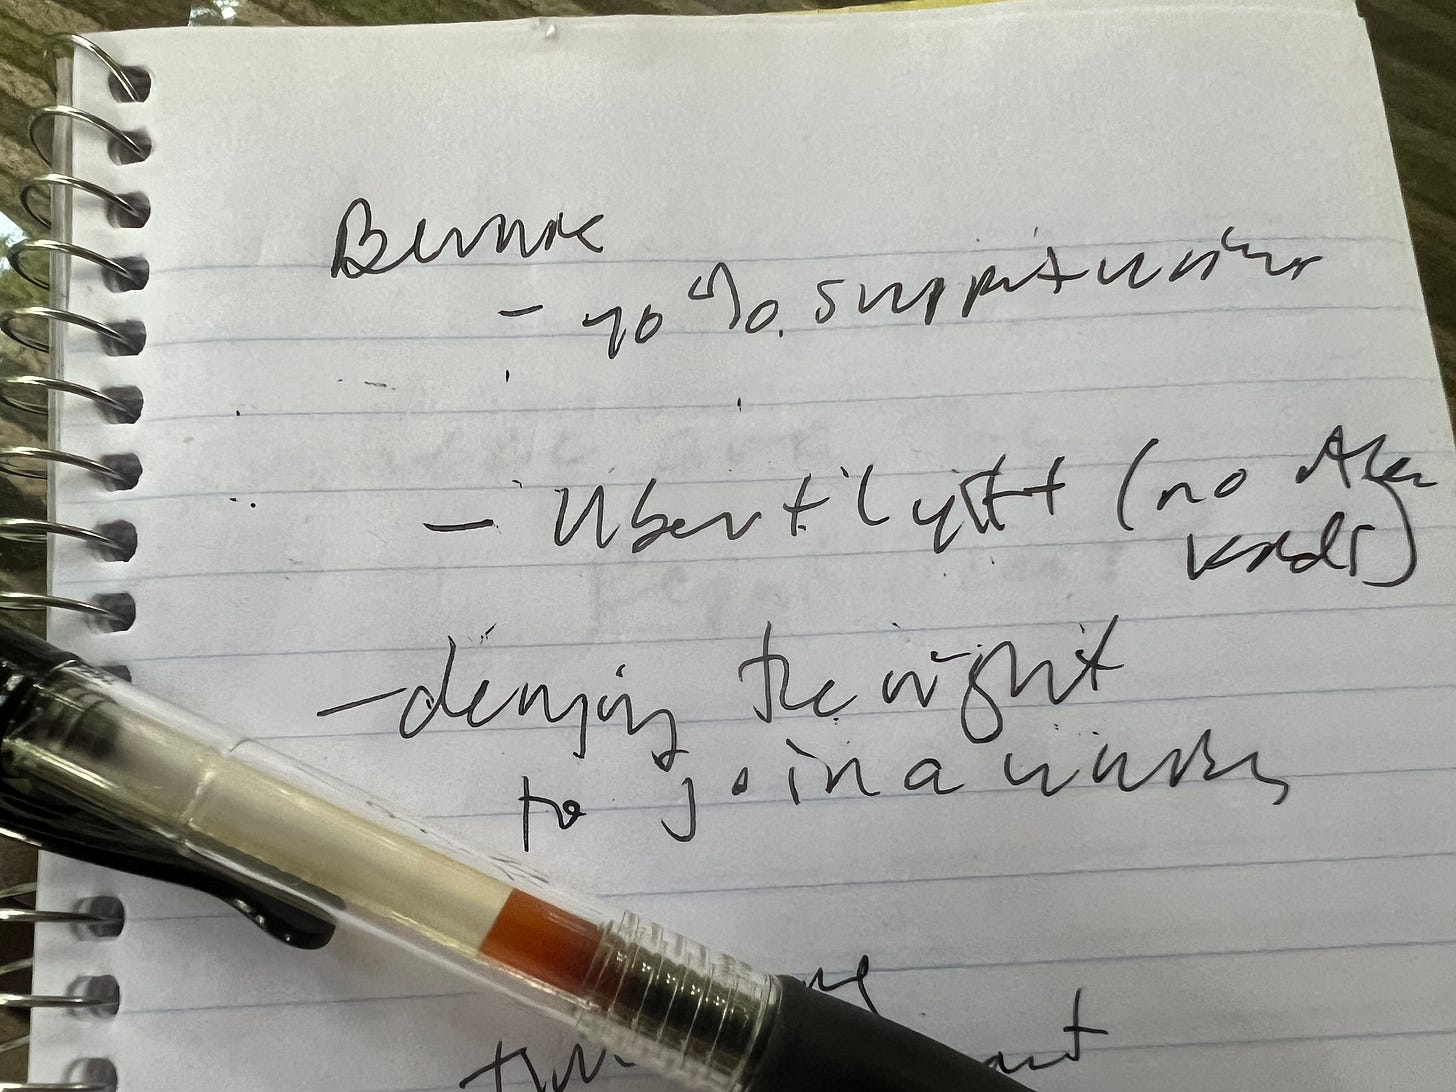 Bernie
- 70% support unions
- Uber + Lyft (no
- denying the right
to join a union